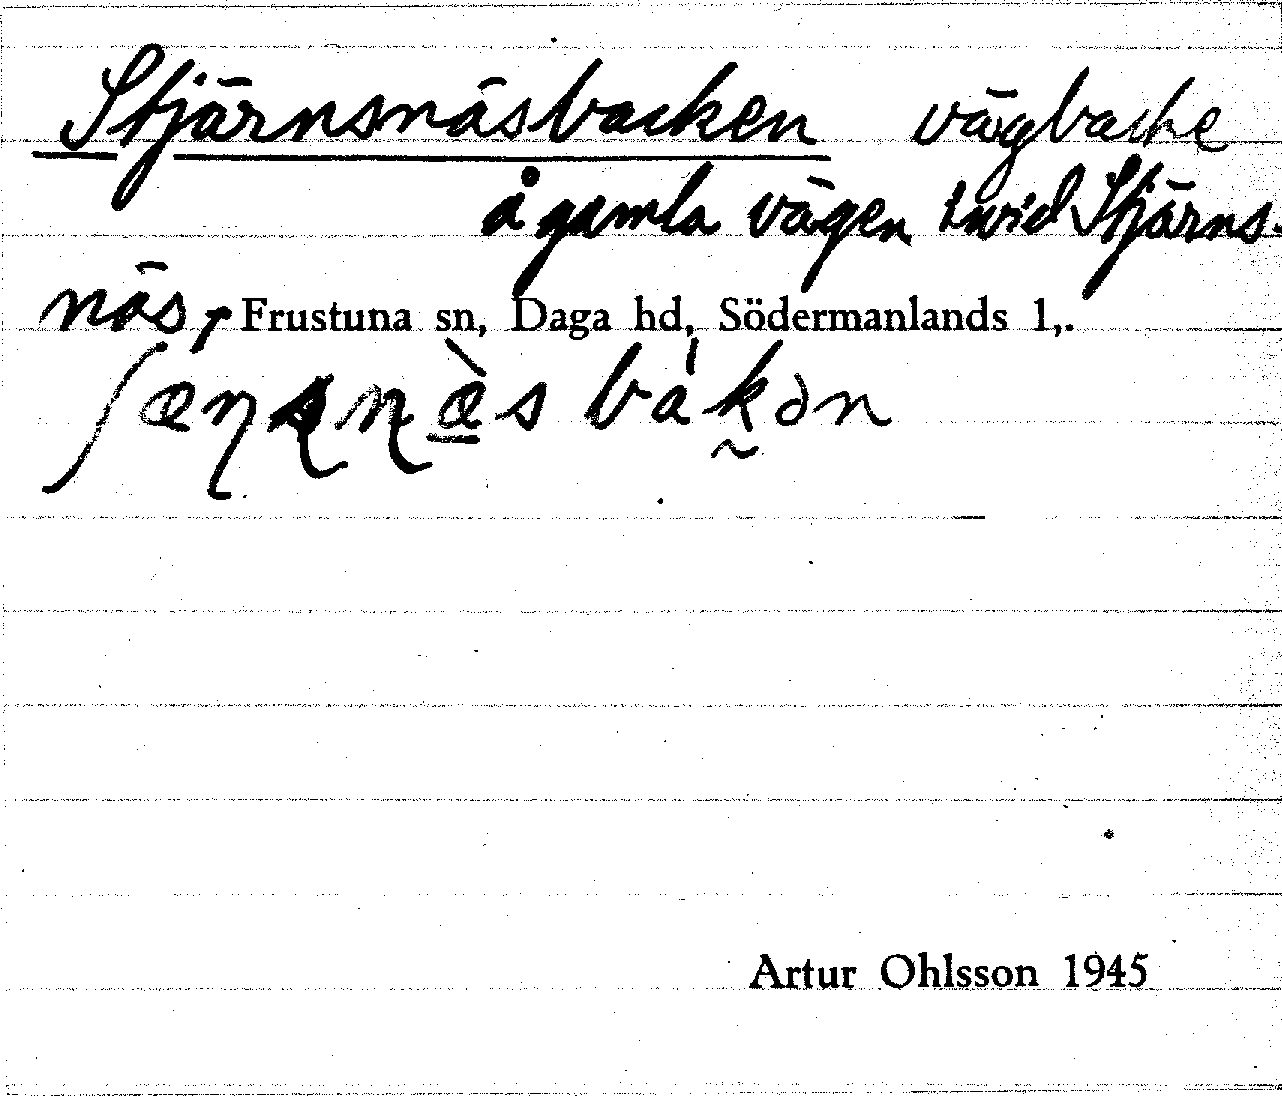 Stjärnsnäsbacken vägbacke
å gamla vägen invid Stjärns-
näs, Frustuna sn, Daga hd, Södermanlands l,.
bàkən
Artur Ohlsson 1945